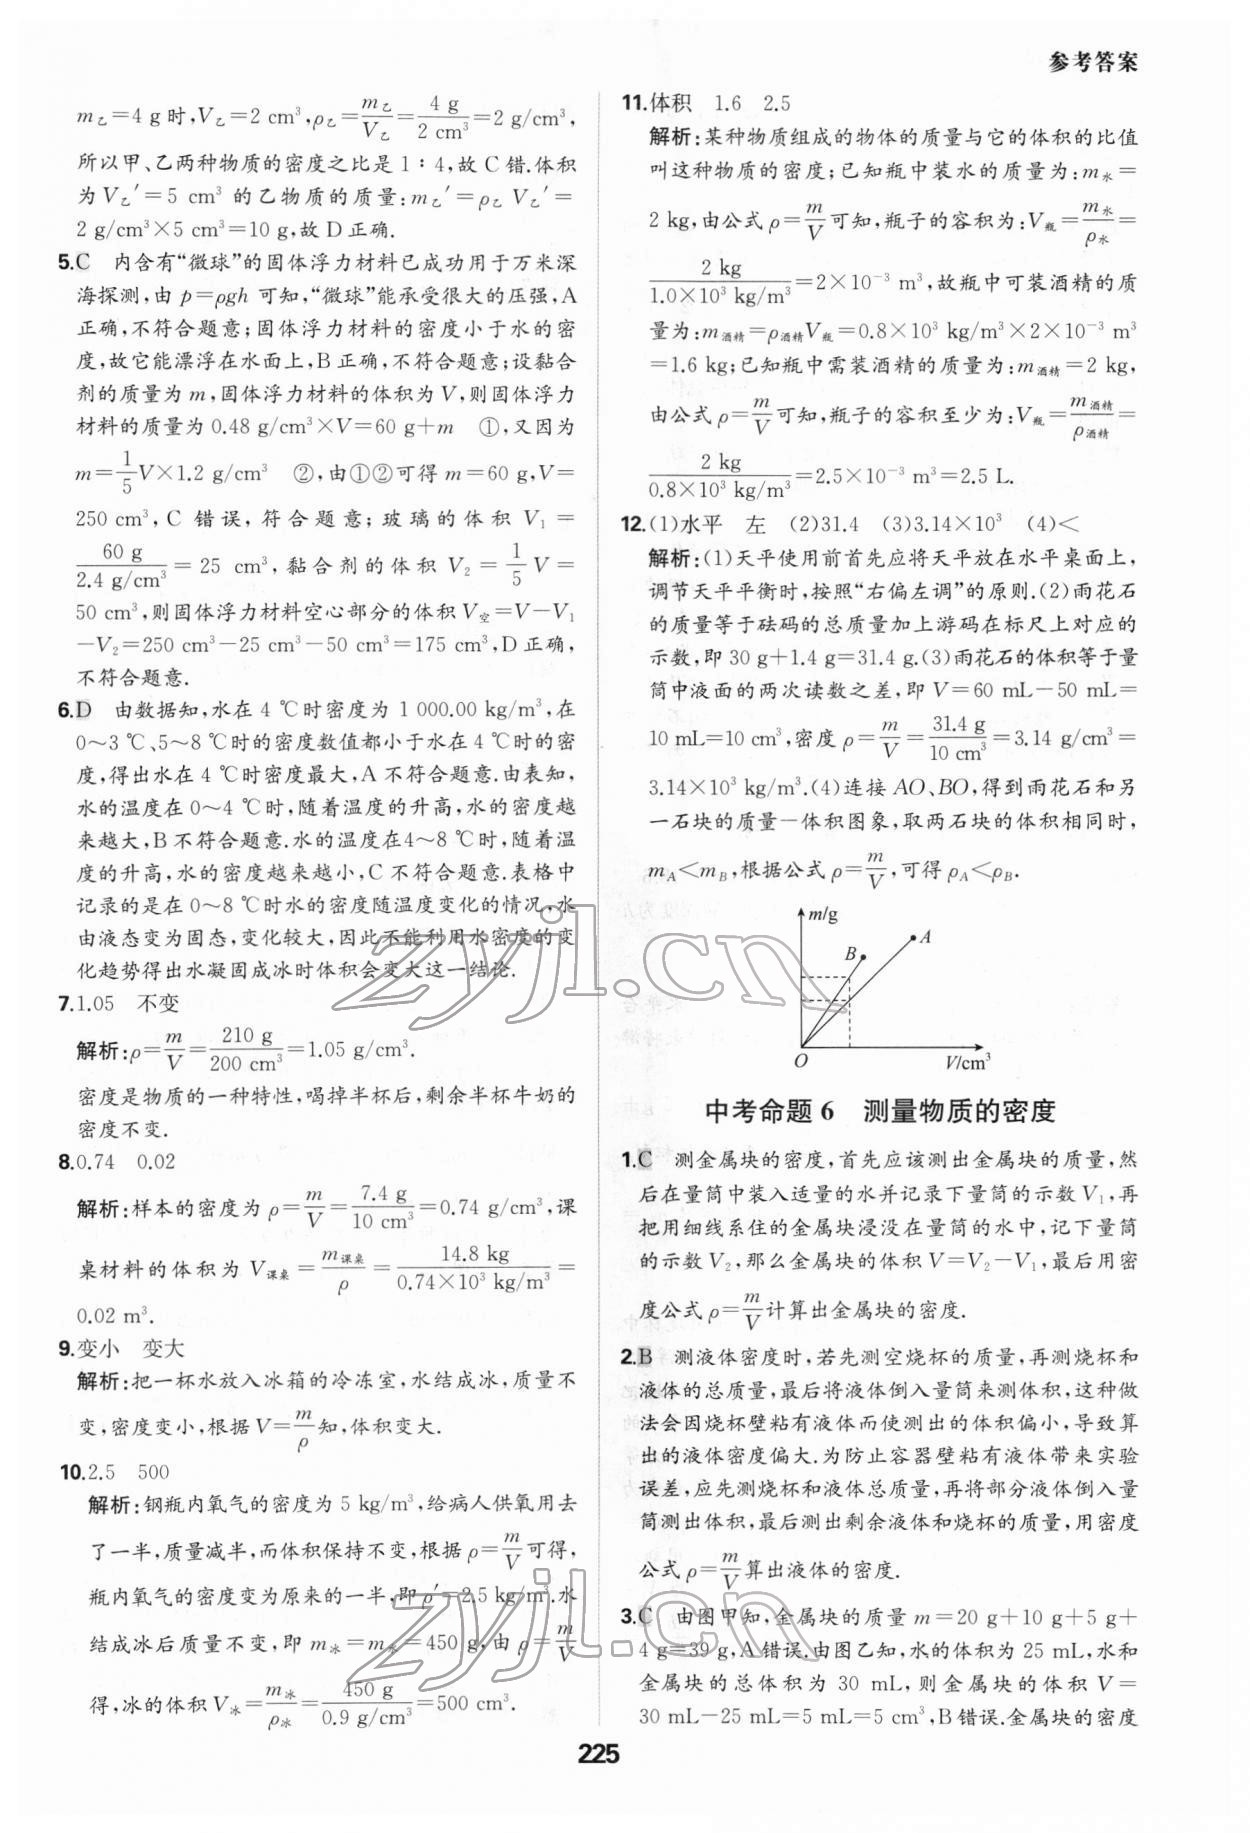 参考答案
m乙=4 g时,V乙=2 cm³,ρ乙=m乙/V乙=4 g/2 cm³=2 g/cm³,
所以甲、乙两种物质的密度之比是1∶4,故C错.体积
为V乙′=5 cm³的乙物质的质量:m乙′=ρ乙V乙′=
2 g/cm³×5 cm³=10 g,故D正确.
5.C 内含有“微球”的固体浮力材料已成功用于万米深
海探测,由p=ρgh可知,“微球”能承受很大的压强,A
正确,不符合题意;固体浮力材料的密度小于水的密
度,故它能漂浮在水面上,B正确,不符合题意;设黏合
剂的质量为m,固体浮力材料的体积为V,则固体浮力
材料的质量为0.48 g/cm³×V=60 g+m ①,又因为
m=1/5V×1.2 g/cm³ ②,由①②可得m=60 g,V=
250 cm³,C错误,符合题意;玻璃的体积V₁=
60 g/2.4 g/cm³=25 cm³,黏合剂的体积V₂=1/5V=
50 cm³,则固体浮力材料空心部分的体积V空=V-V₁
-V₂=250 cm³-25 cm³-50 cm³=175 cm³,D正确,
不符合题意.
6.D 由数据知,水在4 ℃时密度为1 000.00 kg/m³,在
0~3 ℃、5~8 ℃时的密度数值都小于水在4 ℃时的密
度,得出水在4 ℃时密度最大,A不符合题意.由表知,
水的温度在0~4 ℃时,随着温度的升高,水的密度越
来越大,B不符合题意.水的温度在4~8 ℃时,随着温
度的升高,水的密度越来越小,C不符合题意.表格中
记录的是在0~8 ℃时水的密度随温度变化的情况,水
由液态变为固态,变化较大,因此不能利用水密度的变
化趋势得出水凝固成冰时体积会变大这一结论.
7.1.05 不变
解析:ρ=m/V=210 g/200 cm³=1.05 g/cm³.
密度是物质的一种特性,喝掉半杯后,剩余半杯牛奶的
密度不变.
8.0.74 0.02
解析:样本的密度为ρ=m/V=7.4 g/10 cm³=0.74 g/cm³,课
桌材料的体积为V课桌=m课桌/ρ=14.8 kg/0.74×10³ kg/m³=
0.02 m³.
9.变小 变大
解析:把一杯水放入冰箱的冷冻室,水结成冰,质量不
变,密度变小,根据V=m/ρ知,体积变大.
10.2.5 500
解析:钢瓶内氧气的密度为5 kg/m³,给病人供氧用去
了一半,质量减半,而体积保持不变,根据ρ=m/V可得,
瓶内氧气的密度变为原来的一半,即ρ′=2.5 kg/m³.水
结成冰后质量不变,即m冰=m水=450 g,由ρ=m/V
得,冰的体积V冰=m冰/ρ冰=450 g/0.9 g/cm³=500 cm³.
11.体积 1.6 2.5
解析:某种物质组成的物体的质量与它的体积的比值
叫这种物质的密度;已知瓶中装水的质量为:m水=
2 kg,由公式ρ=m/V可知,瓶子的容积为:V瓶=m水/ρ水=
2 kg/1.0×10³ kg/m³=2×10⁻³ m³,故瓶中可装酒精的质
量为:m酒精=ρ酒精V瓶=0.8×10³ kg/m³×2×10⁻³ m³
=1.6 kg;已知瓶中需装酒精的质量为:m酒精=2 kg,
由公式ρ=m/V可知,瓶子的容积至少为:V瓶=m酒精/ρ酒精=
2 kg/0.8×10³ kg/m³=2.5×10⁻³ m³=2.5 L.
12.(1)水平 左 (2)31.4 (3)3.14×10³ (4)<
解析:(1)天平使用前首先应将天平放在水平桌面上,
调节天平平衡时,按照“右偏左调”的原则.(2)雨花石
的质量等于砝码的总质量加上游码在标尺上对应的
示数,即30 g+1.4 g=31.4 g.(3)雨花石的体积等于量
筒中液面的两次读数之差,即V=60 mL-50 mL=
10 mL=10 cm³,密度ρ=m/V=31.4 g/10 cm³=3.14 g/cm³=
3.14×10³ kg/m³.(4)连接AO、BO,得到雨花石和另
一石块的质量—体积图象,取两石块的体积相同时,
mA<mB,根据公式ρ=m/V,可得ρA<ρB.
m/g
A
B
O
V/cm³
中考命题6 测量物质的密度
1.C 测金属块的密度,首先应该测出金属块的质量,然
后在量筒中装入适量的水并记录下量筒的示数V₁,再
把用细线系住的金属块浸没在量筒的水中,记下量筒
的示数V₂,那么金属块的体积V=V₂-V₁,最后用密
度公式ρ=m/V计算出金属块的密度.
2.B 测液体密度时,若先测空烧杯的质量,再测烧杯和
液体的总质量,最后将液体倒入量筒来测体积,这种做
法会因烧杯壁粘有液体而使测出的体积偏小,导致算
出的液体密度偏大.为防止容器壁粘有液体带来实验
误差,应先测烧杯和液体总质量,再将部分液体倒入量
筒测出体积,最后测出剩余液体和烧杯的质量,用密度
公式ρ=m/V算出液体的密度.
3.C 由图甲知,金属块的质量m=20 g+10 g+5 g+
4 g=39 g,A错误.由图乙知,水的体积为25 mL,水和
金属块的总体积为30 mL,则金属块的体积V=
30 mL-25 mL=5 mL=5 cm³,B错误.金属块的密度
225
zyjl.cn
zyjl.cn